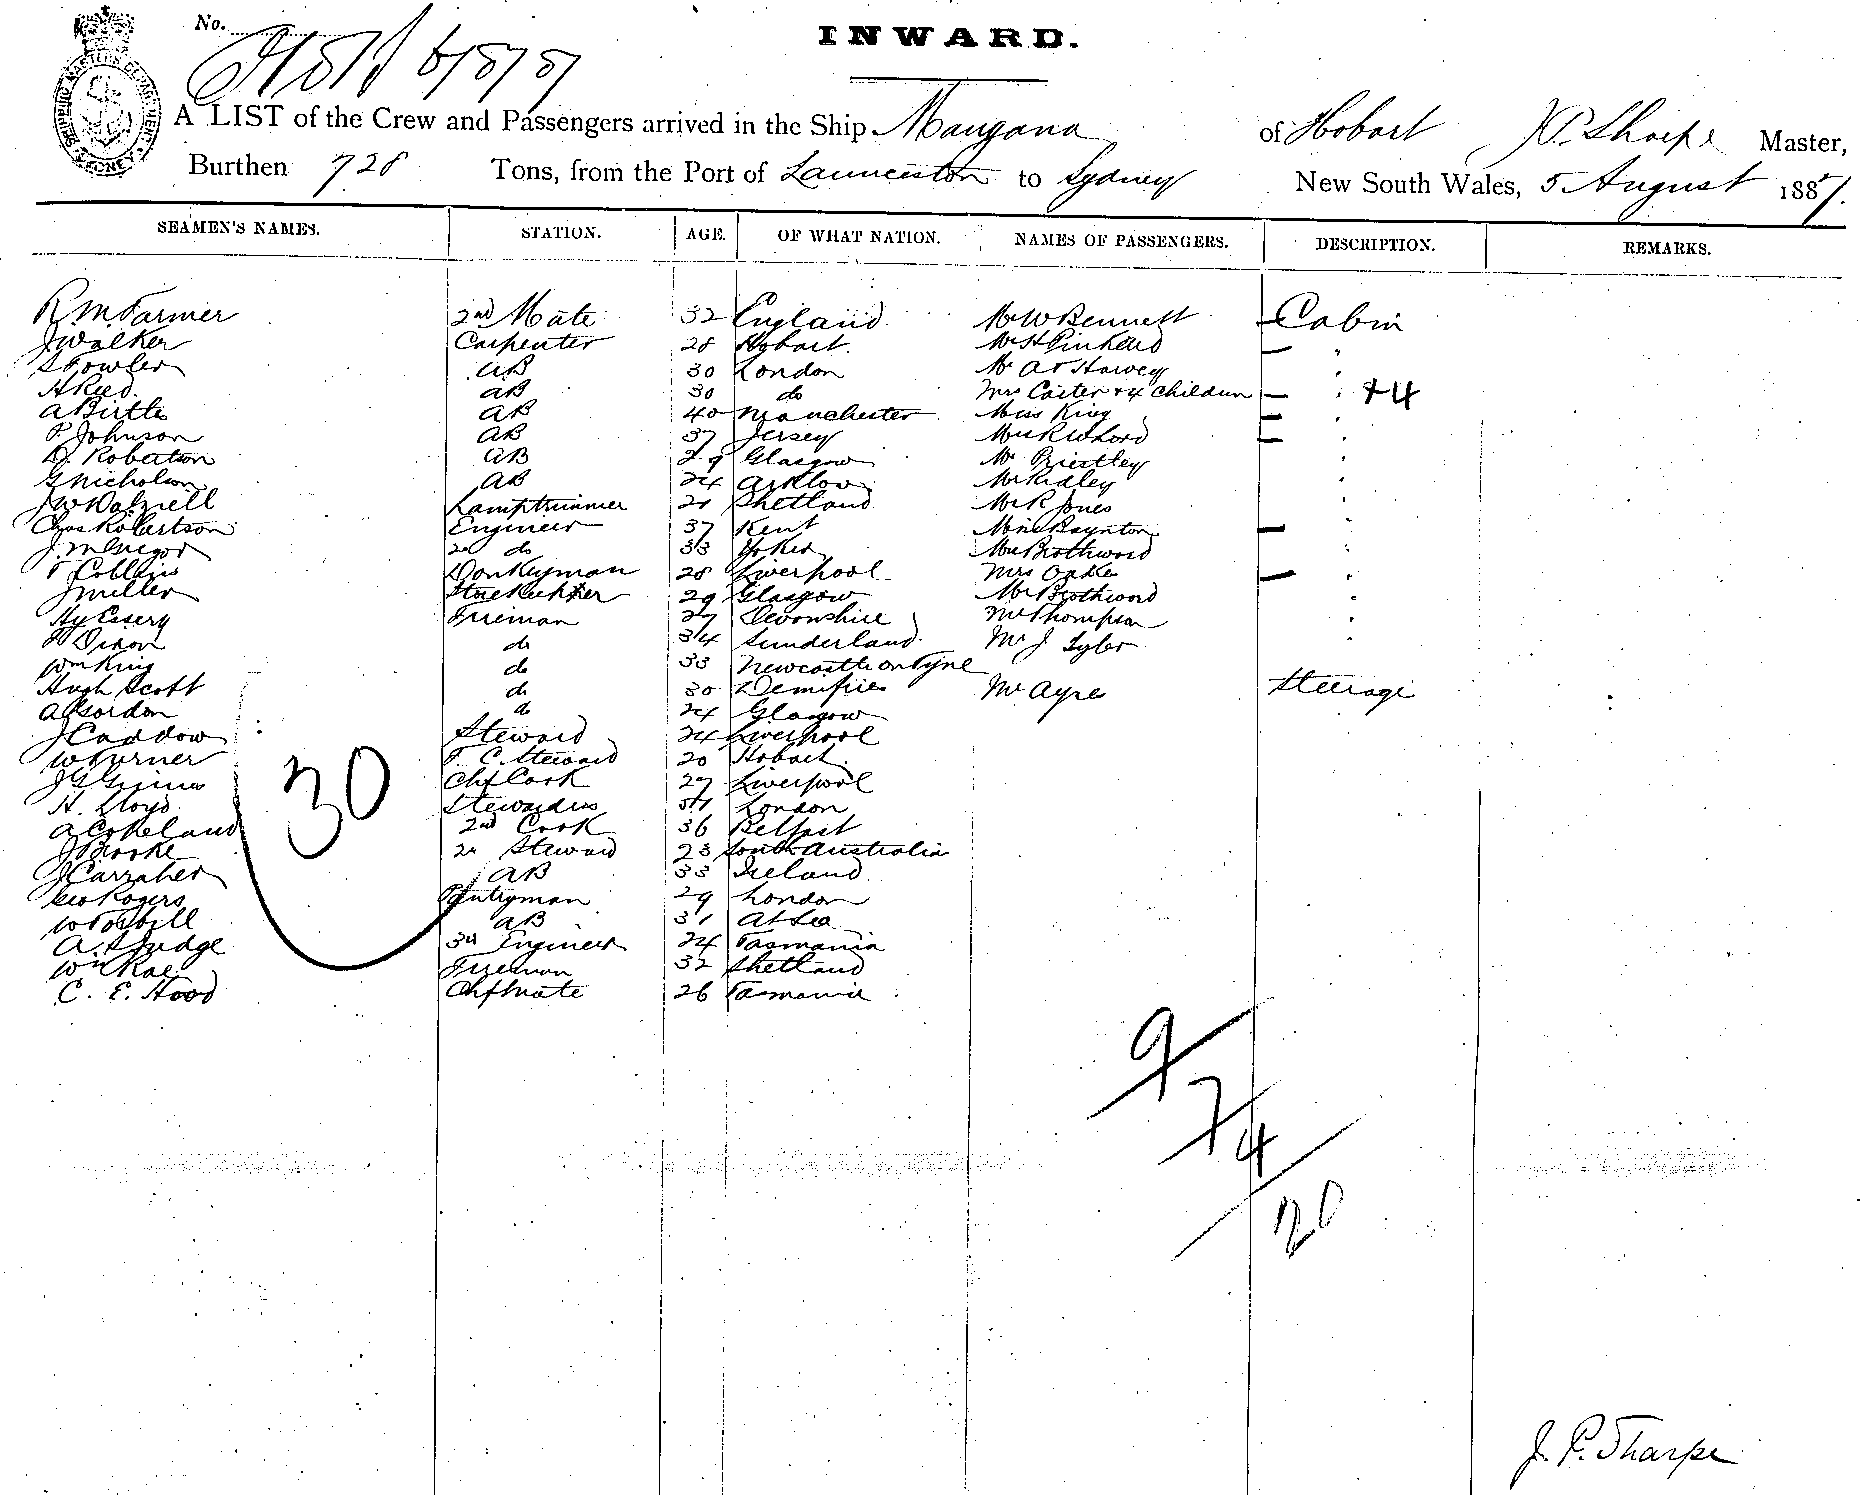 No.
INWARD.
SHIPPING MASTER'S DEPARTMENT SYDNEY
A LIST of the Crew and Passengers arrived in the Ship Mangana of Hobart J.P. Sharpe Master,
Burthen 728 Tons, from the Port of Launceston to Sydney New South Wales, 5 August 1887.
SEAMEN'S NAMES. STATION. AGE. OF WHAT NATION. NAMES OF PASSENGERS. DESCRIPTION. REMARKS.
R. M. Farmer 2nd Mate 32 England Mr W Bennett Cabin
J Walker Carpenter 28 Hobart. Mr H Pinkerd "
S Fowler AB 30 London Mr Harvey "
H Reed AB 30 do Mrs Carter + 4 children " +4
A Birtle AB 40 Manchester Miss King "
P Johnson AB 37 Jersey "
D. Robertson AB 29 Glasgow Mr Priestley "
G Nicholson AB 24 Arklow Mr Ridley "
J W Lamptrimmer 21 Shetland Mr R Jones "
Chas Robertson Engineer 37 Kent Miss Boynton "
J. McGregor 2nd do 33 Mr Brothwood "
Collins Donkeyman 28 Liverpool Mrs "
J Miller Storekeeper 29 Glasgow Mr Brothwood "
Hy Essery Fireman 27 Devonshire Mr Thompson "
Dixon do 34 Sunderland Mr J Tyler "
Wm King do 33 Newcastle on Tyne
Hugh Scott do 30 Mr Ayre Steerage
A Gordon do 24 Glasgow
J Caddow Steward 24 Liverpool
W Turner F. C. Steward 20 Hobart
J G Grimes Chf Cook 27 Liverpool
H. Lloyd Stewardess London
A Copeland 2nd Cook 36 Belfast
J Brooke 2nd Steward 23 South Australia
J Carraher AB 33 Ireland
Geo Rogers Pantryman 29 London
W AB 31 At Sea
A. Judge 3rd Engineer 24 Tasmania
Wm Rae Fireman 32 Shetland
C. E. Hood Chf Mate 26 Tasmania
30
9
7
4
20
J. P. Sharpe